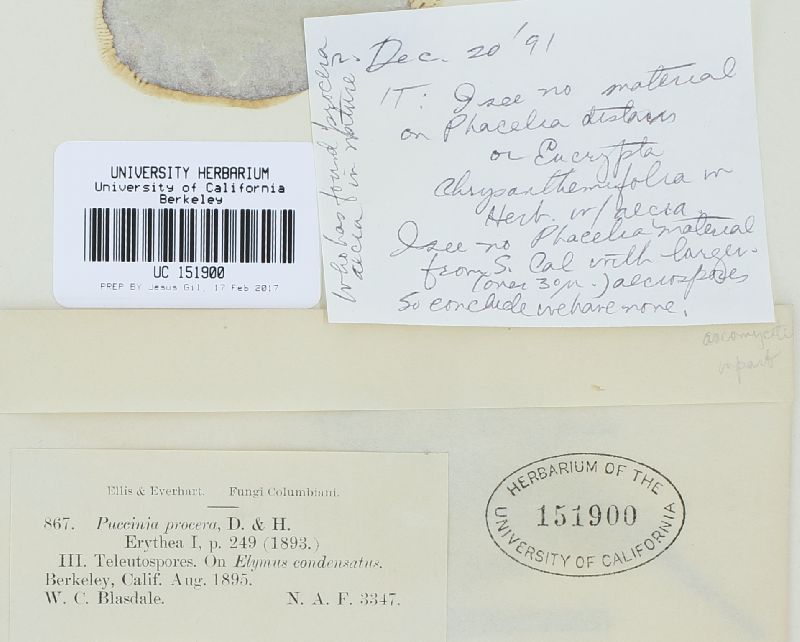 Dec. 20 '91
IT: I see no material
on Phacelia distans
or Eucrypta
Chrysanthemifolia in
Herb. w/ aecia.
I see no Phacelia material
from S. Cal with larger
(over 30µ.) aeciospores
So conclude we have none.
Who has found procera
aecia in nature?
UNIVERSITY HERBARIUM
University of California
Berkeley
UC 151900
PREP BY Jesus Gil, 17 Feb 2017
ascomycete
in part
Ellis & Everhart. Fungi Columbiani.
867. Puccinia procera, D. & H.
Erythea I, p. 249 (1893.)
III. Teleutospores. On Elymus condensatus.
Berkeley, Calif. Aug. 1895.
W. C. Blasdale. N. A. F. 3347.
HERBARIUM OF THE
151900
UNIVERSITY OF CALIFORNIA